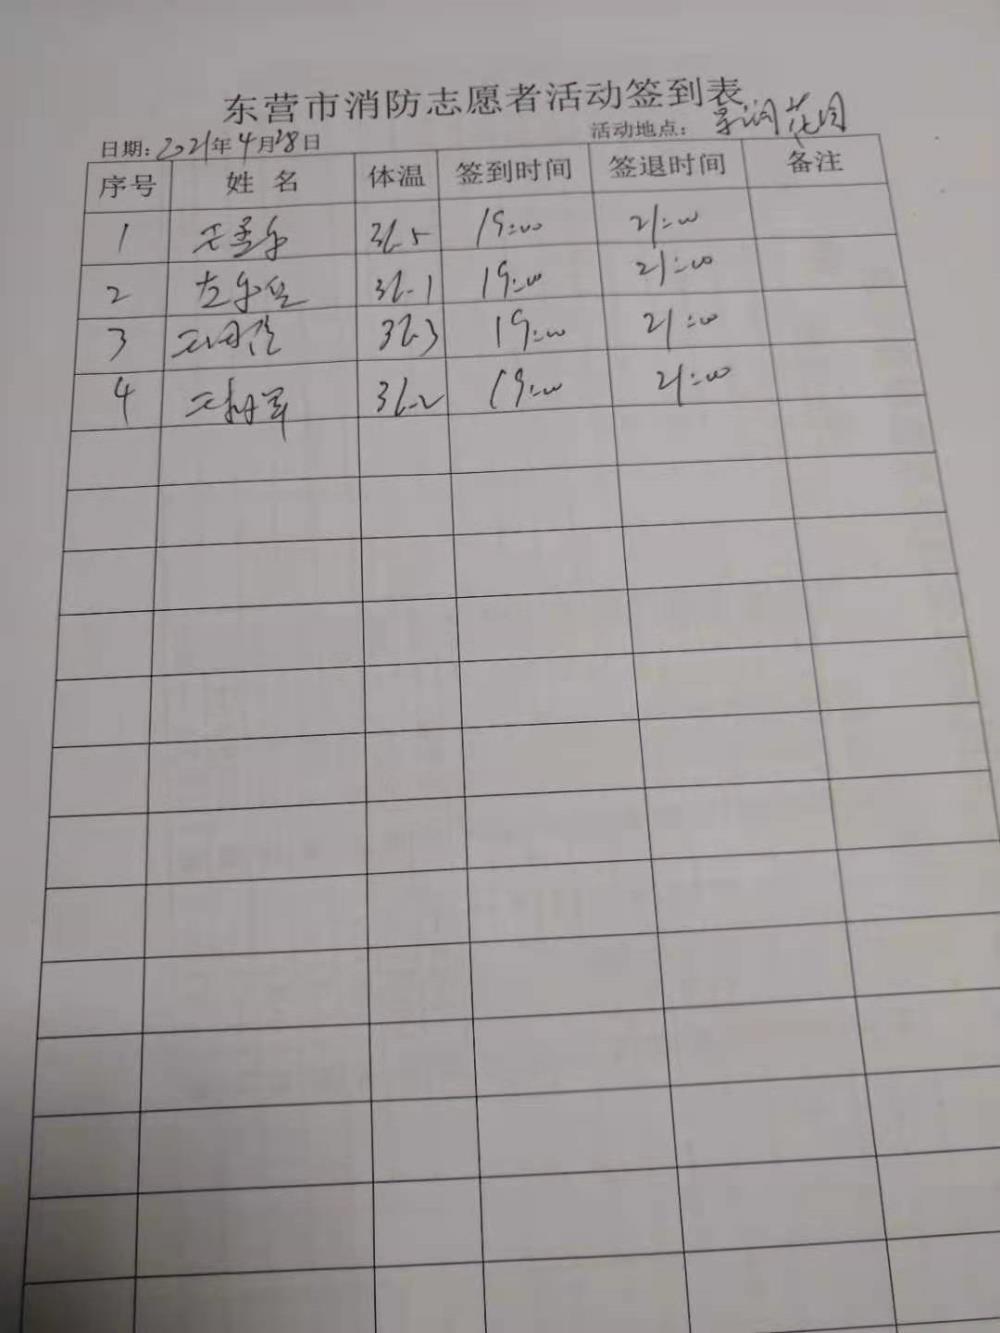 东营市消防志愿者活动签到表
日期：2021年4月28日 活动地点： 花园
序号 姓名 体温 签到时间 签退时间 备注
1 36.5 19:00 21:00
2 36.1 19:00 21:00
3 36.3 19:00 21:00
4 36.2 19:00 21:00